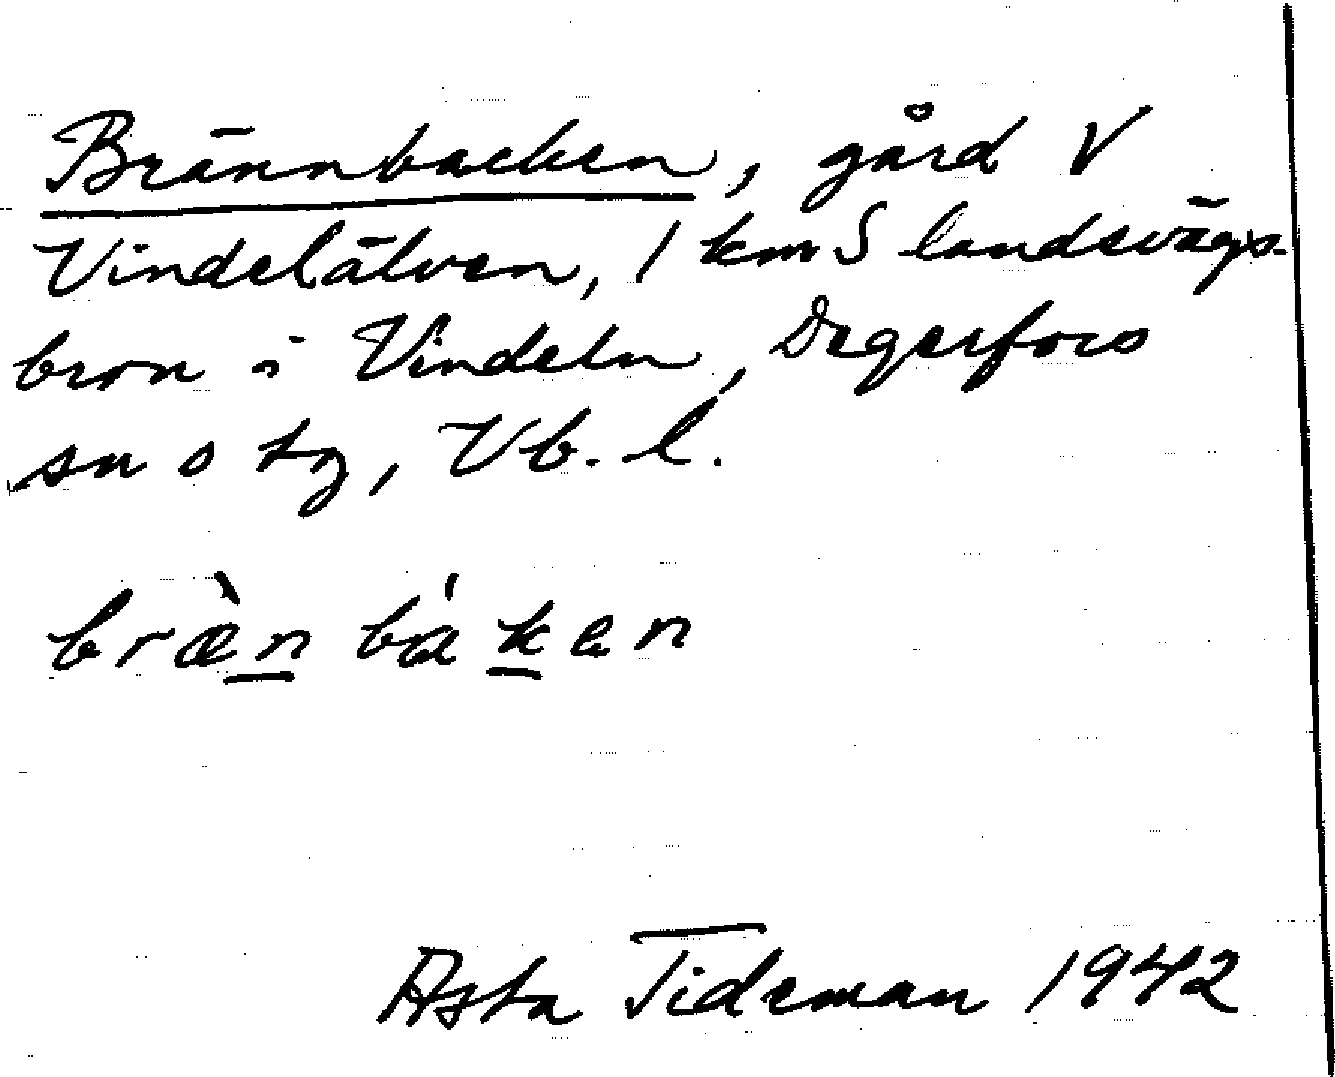 Brännbacken, gård V
Vindelälven, 1 km S landsvägs-
bron i Vindeln, Degerfors
sn o tg, Vb. l.
bræ̀n bá ken
Asta Tideman 1942